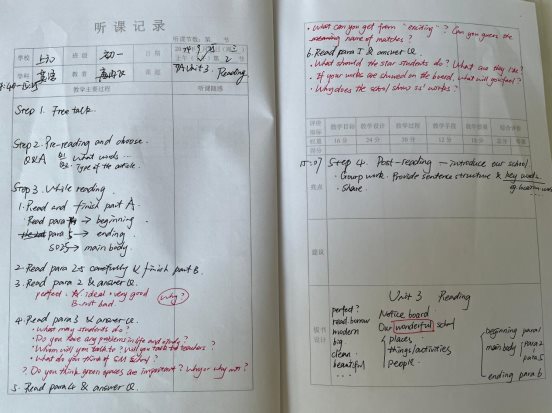 听课记录
听课节数: 第 节
学校
班级 初一
日期
学科 英语
教者
课题 7A Unit 3 Reading
教学主要过程
听课随感
Step 1. Free talk.
Step 2. Pre-reading and choose.
Q&A Q1. What words ...
Q2. Type of the article.
Step 3. While reading
1. Read and finish part A.
Read para 1 → beginning
para 5 → ending
→ main body.
2. Read para 2-5 carefully & finish part B.
3. Read para 2 & answer Q.
perfect. A ideal, very good
B. not bad
why?
4. Read para 3 & answer Q.
· What may students do?
· Do you have any problems in life and study?
· Whom will you talk to? Will you talk to teachers?
· What do you think of school?
? Do you think green spaces are important? Why or why not?
5. Read para 4 & answer Q.
· What can you get from "exciting"? Can you guess the
name of matches?
6. Read para 5 & answer Q.
· What should the star students do? What are they like?
· If your works are showed on the board, what will you feel?
· Why does the school show ss' works?
评价指标 教学目标 教学设计 教学过程 教学手段 教学素养 综合评价
权重 16分 24分 30分 12分 18分 总分 等第
得分
Step 4. Post-reading — introduce our school.
· Group work. Provide sentence structure & key words
· Share
亮点
建议
板书设计
Unit 3 Reading
perfect?
modern
big
clean
beautiful
...
Notice board
Our wonderful school
places
things/activities
people
beginning para 1
main body para 2
para 5
ending para 6